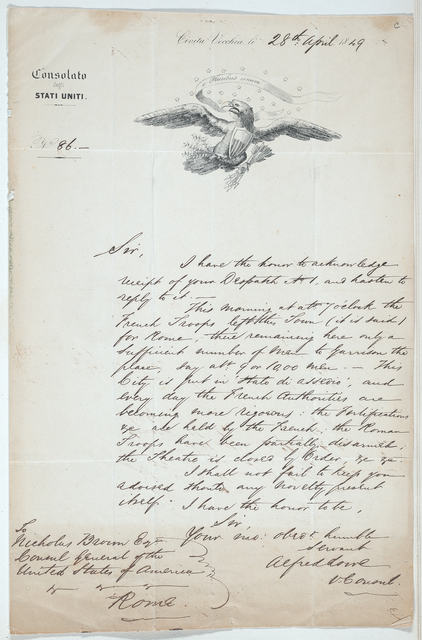 c
Civita Vecchia le 28th April 1849
Consolato
degli
STATI UNITI.
E Pluribus unum
No. 86.—
Sir,
I have the honor to acknowledge
receipt of your Despatch No 1, and hasten to
reply to it.—
This morning at abt 7 o'clock the
French Troops left this Town (it is said)
for Rome, there remaining here only a
sufficient number of Men to garrison the
place, say abt 9 or 1000 men.— This
City is put in Stato di assedio, and
every day the French Authorities are
becoming more rigorous: the Fortifications
&c are held by the French, the Roman
Troops have been partially disarmed
the Theatre is closed by Order, &c &c.
I shall not fail to keep you
advised should any novelty present
itself. I have the honor to be,
Sir
Your mo: obedt humble
Servant
Alfred Lowe
V. Consul
To
Nicholas Brown Esqre
Consul General of the
United States of America
Rome